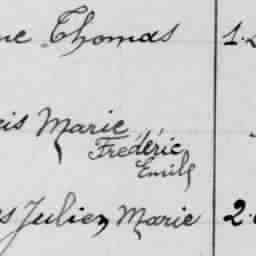 Thomas 1.
Marie
Frédéric
Emile
Julien Marie 2.